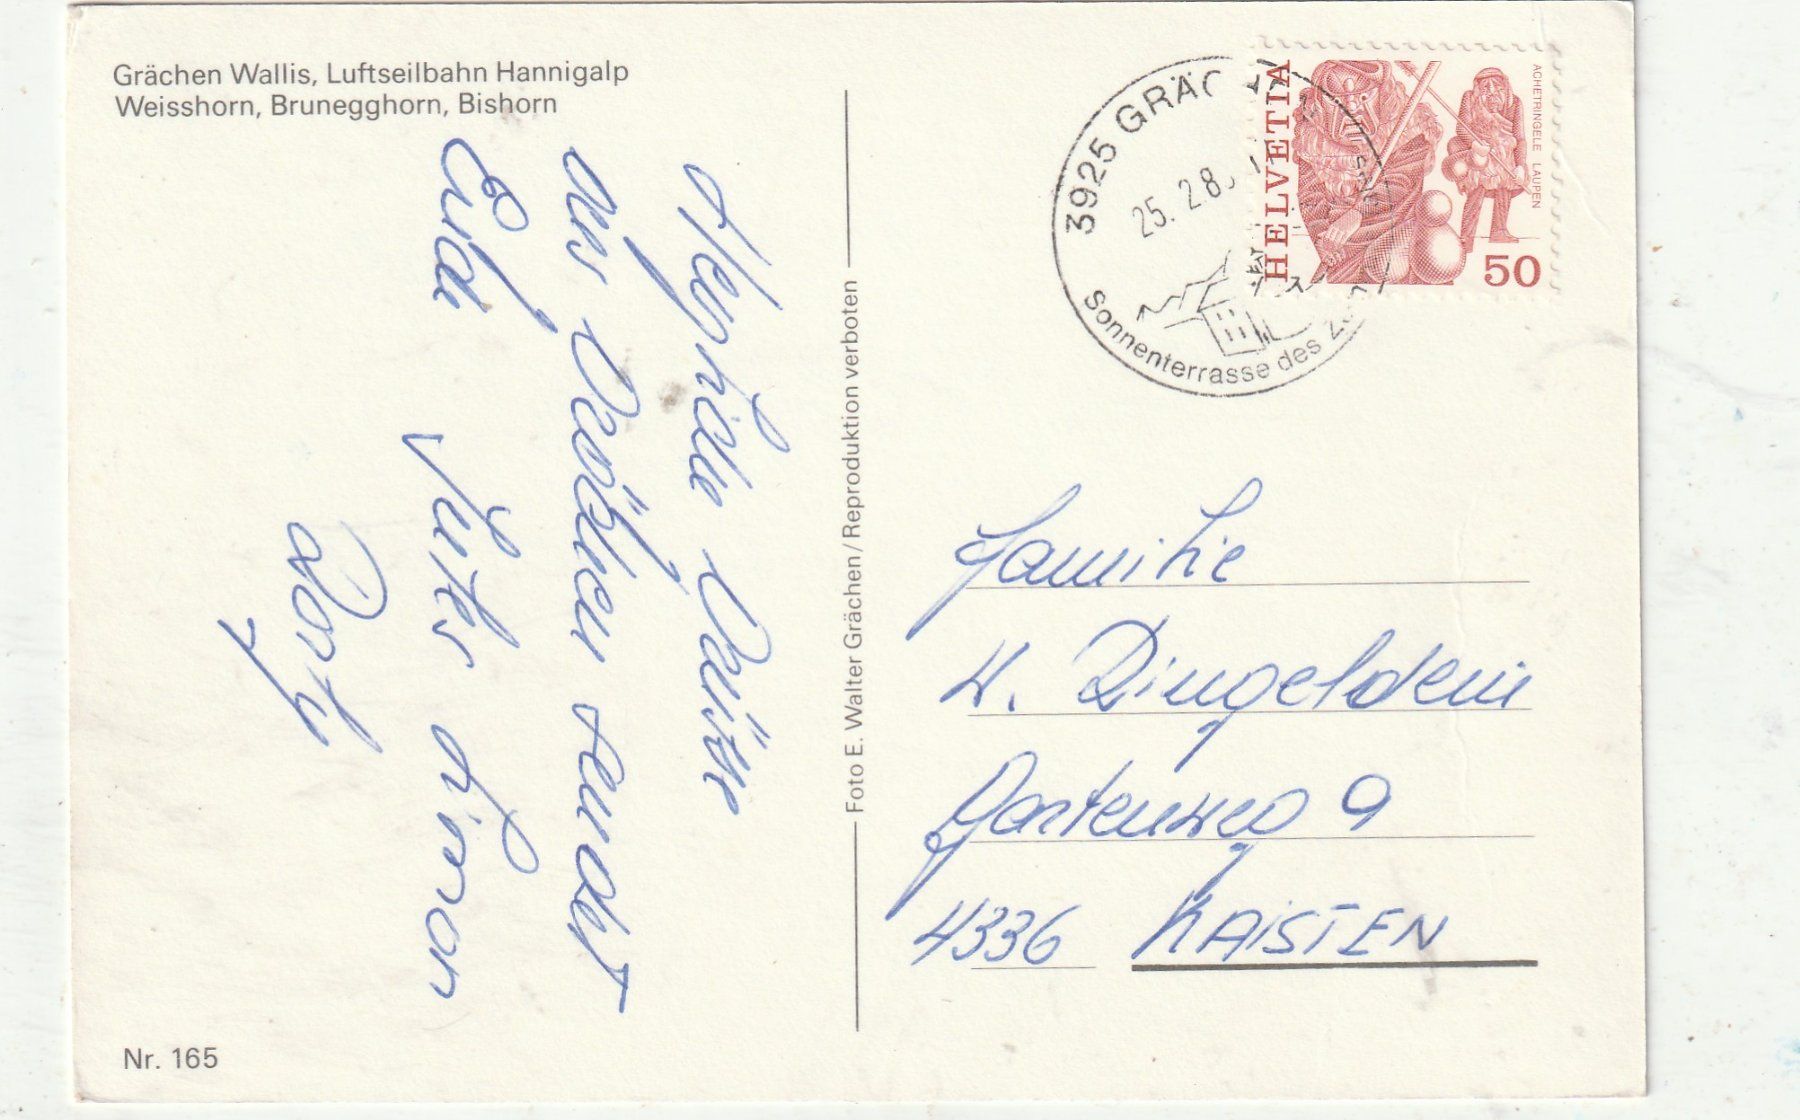 Grächen Wallis, Luftseilbahn Hannigalp
Weisshorn, Brunegghorn, Bishorn
Herzliche Grüsse
aus Grächen sendet
Euch
Vreni
Dorly
Foto E. Walter Grächen/Reproduktion verboten
3925 GRÄCHEN
25. 2.8
Sonnenterrasse des
HELVETIA
ACHETRINGELE LAUPEN
50
Familie
W. Dingeldein
Gartenweg 9
4336 KAISTEN
Nr. 165